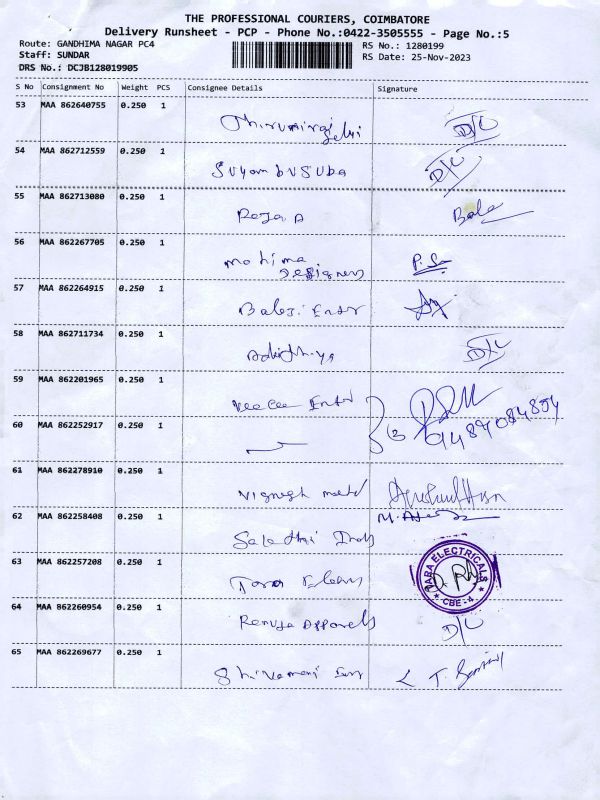 THE PROFESSIONAL COURIERS, COIMBATORE
Delivery Runsheet - PCP - Phone No.:0422-3505555 - Page No.:5
Route: GANDHIMA NAGAR PC4
RS No.: 1280199
Staff: SUNDAR
RS Date: 25-Nov-2023
DRS No.: DCJB128019905
S No Consignment No Weight PCS Consignee Details Signature
53 MAA 862640755 0.250 1
Selvi D/L
54 MAA 862712559 0.250 1
SuyambuSuba D/L
55 MAA 862713080 0.250 1
Raja A Bala
56 MAA 862267705 0.250 1
Mahima
Designers
57 MAA 862264915 0.250 1
Balaji Entr
58 MAA 862711734 0.250 1
Adhithya D/L
59 MAA 862201965 0.250 1
Veecee Entr
9487084854
60 MAA 862252917 0.250 1
61 MAA 862278910 0.250 1
Vignesh
62 MAA 862258408 0.250 1
63 MAA 862257208 0.250 1
Para
PARA ELECTRICALS
* CBE-4. *
64 MAA 862260954 0.250 1
Renuja Apparels D/L
65 MAA 862269677 0.250 1
Shivamani